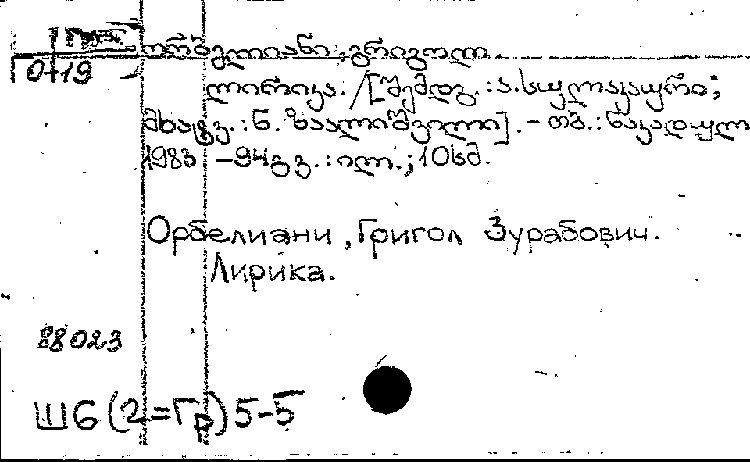 ორბელიანი, გრიგოლ
0-19
ლირიკა. /[შემდგ.: ა.სულაკაური;
მხატვ.: ნ. ზაალიშვილი]. - თბ.: ნაკადული
1983 - 94გვ.: ილ.; 10სმ.
Орбелиани, Григол Зурабович.
Лирика.
88023
Ш6(2=Гр)5-5